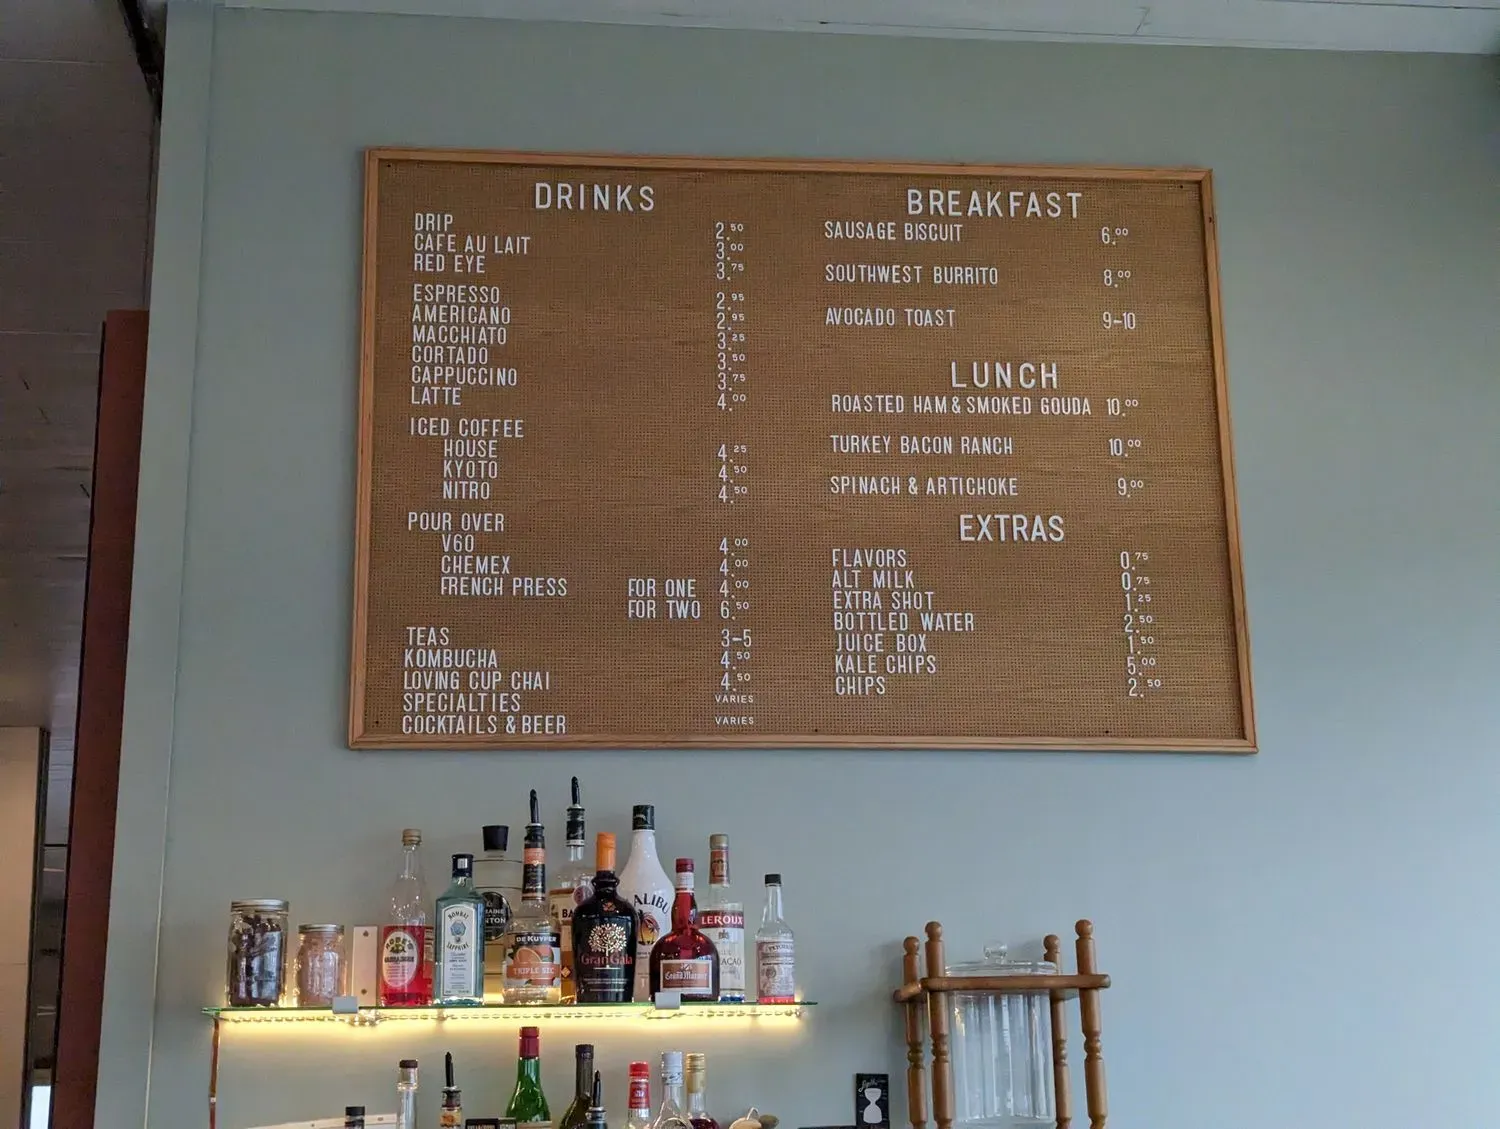 DRINKS
DRIP 2.50
CAFE AU LAIT 3.00
RED EYE 3.75
ESPRESSO 2.95
AMERICANO 2.95
MACCHIATO 3.25
CORTADO 3.50
CAPPUCCINO 3.75
LATTE 4.00
ICED COFFEE
HOUSE 4.25
KYOTO 4.50
NITRO 4.50
POUR OVER
V60 4.00
CHEMEX 4.00
FRENCH PRESS FOR ONE 4.00
FOR TWO 6.50
TEAS 3-5
KOMBUCHA 4.50
LOVING CUP CHAI 4.50
SPECIALTIES VARIES
COCKTAILS & BEER VARIES
BREAKFAST
SAUSAGE BISCUIT 6.00
SOUTHWEST BURRITO 8.00
AVOCADO TOAST 9-10
LUNCH
ROASTED HAM & SMOKED GOUDA 10.00
TURKEY BACON RANCH 10.00
SPINACH & ARTICHOKE 9.00
EXTRAS
FLAVORS 0.75
ALT MILK 0.75
EXTRA SHOT 1.25
BOTTLED WATER 2.50
JUICE BOX 1.50
KALE CHIPS 5.00
CHIPS 2.50
BOMBAY
SAPPHIRE
DEKUYPER
TRIPLE SEC
GranGala
ALIBU
Grand Marnier
LEROUX